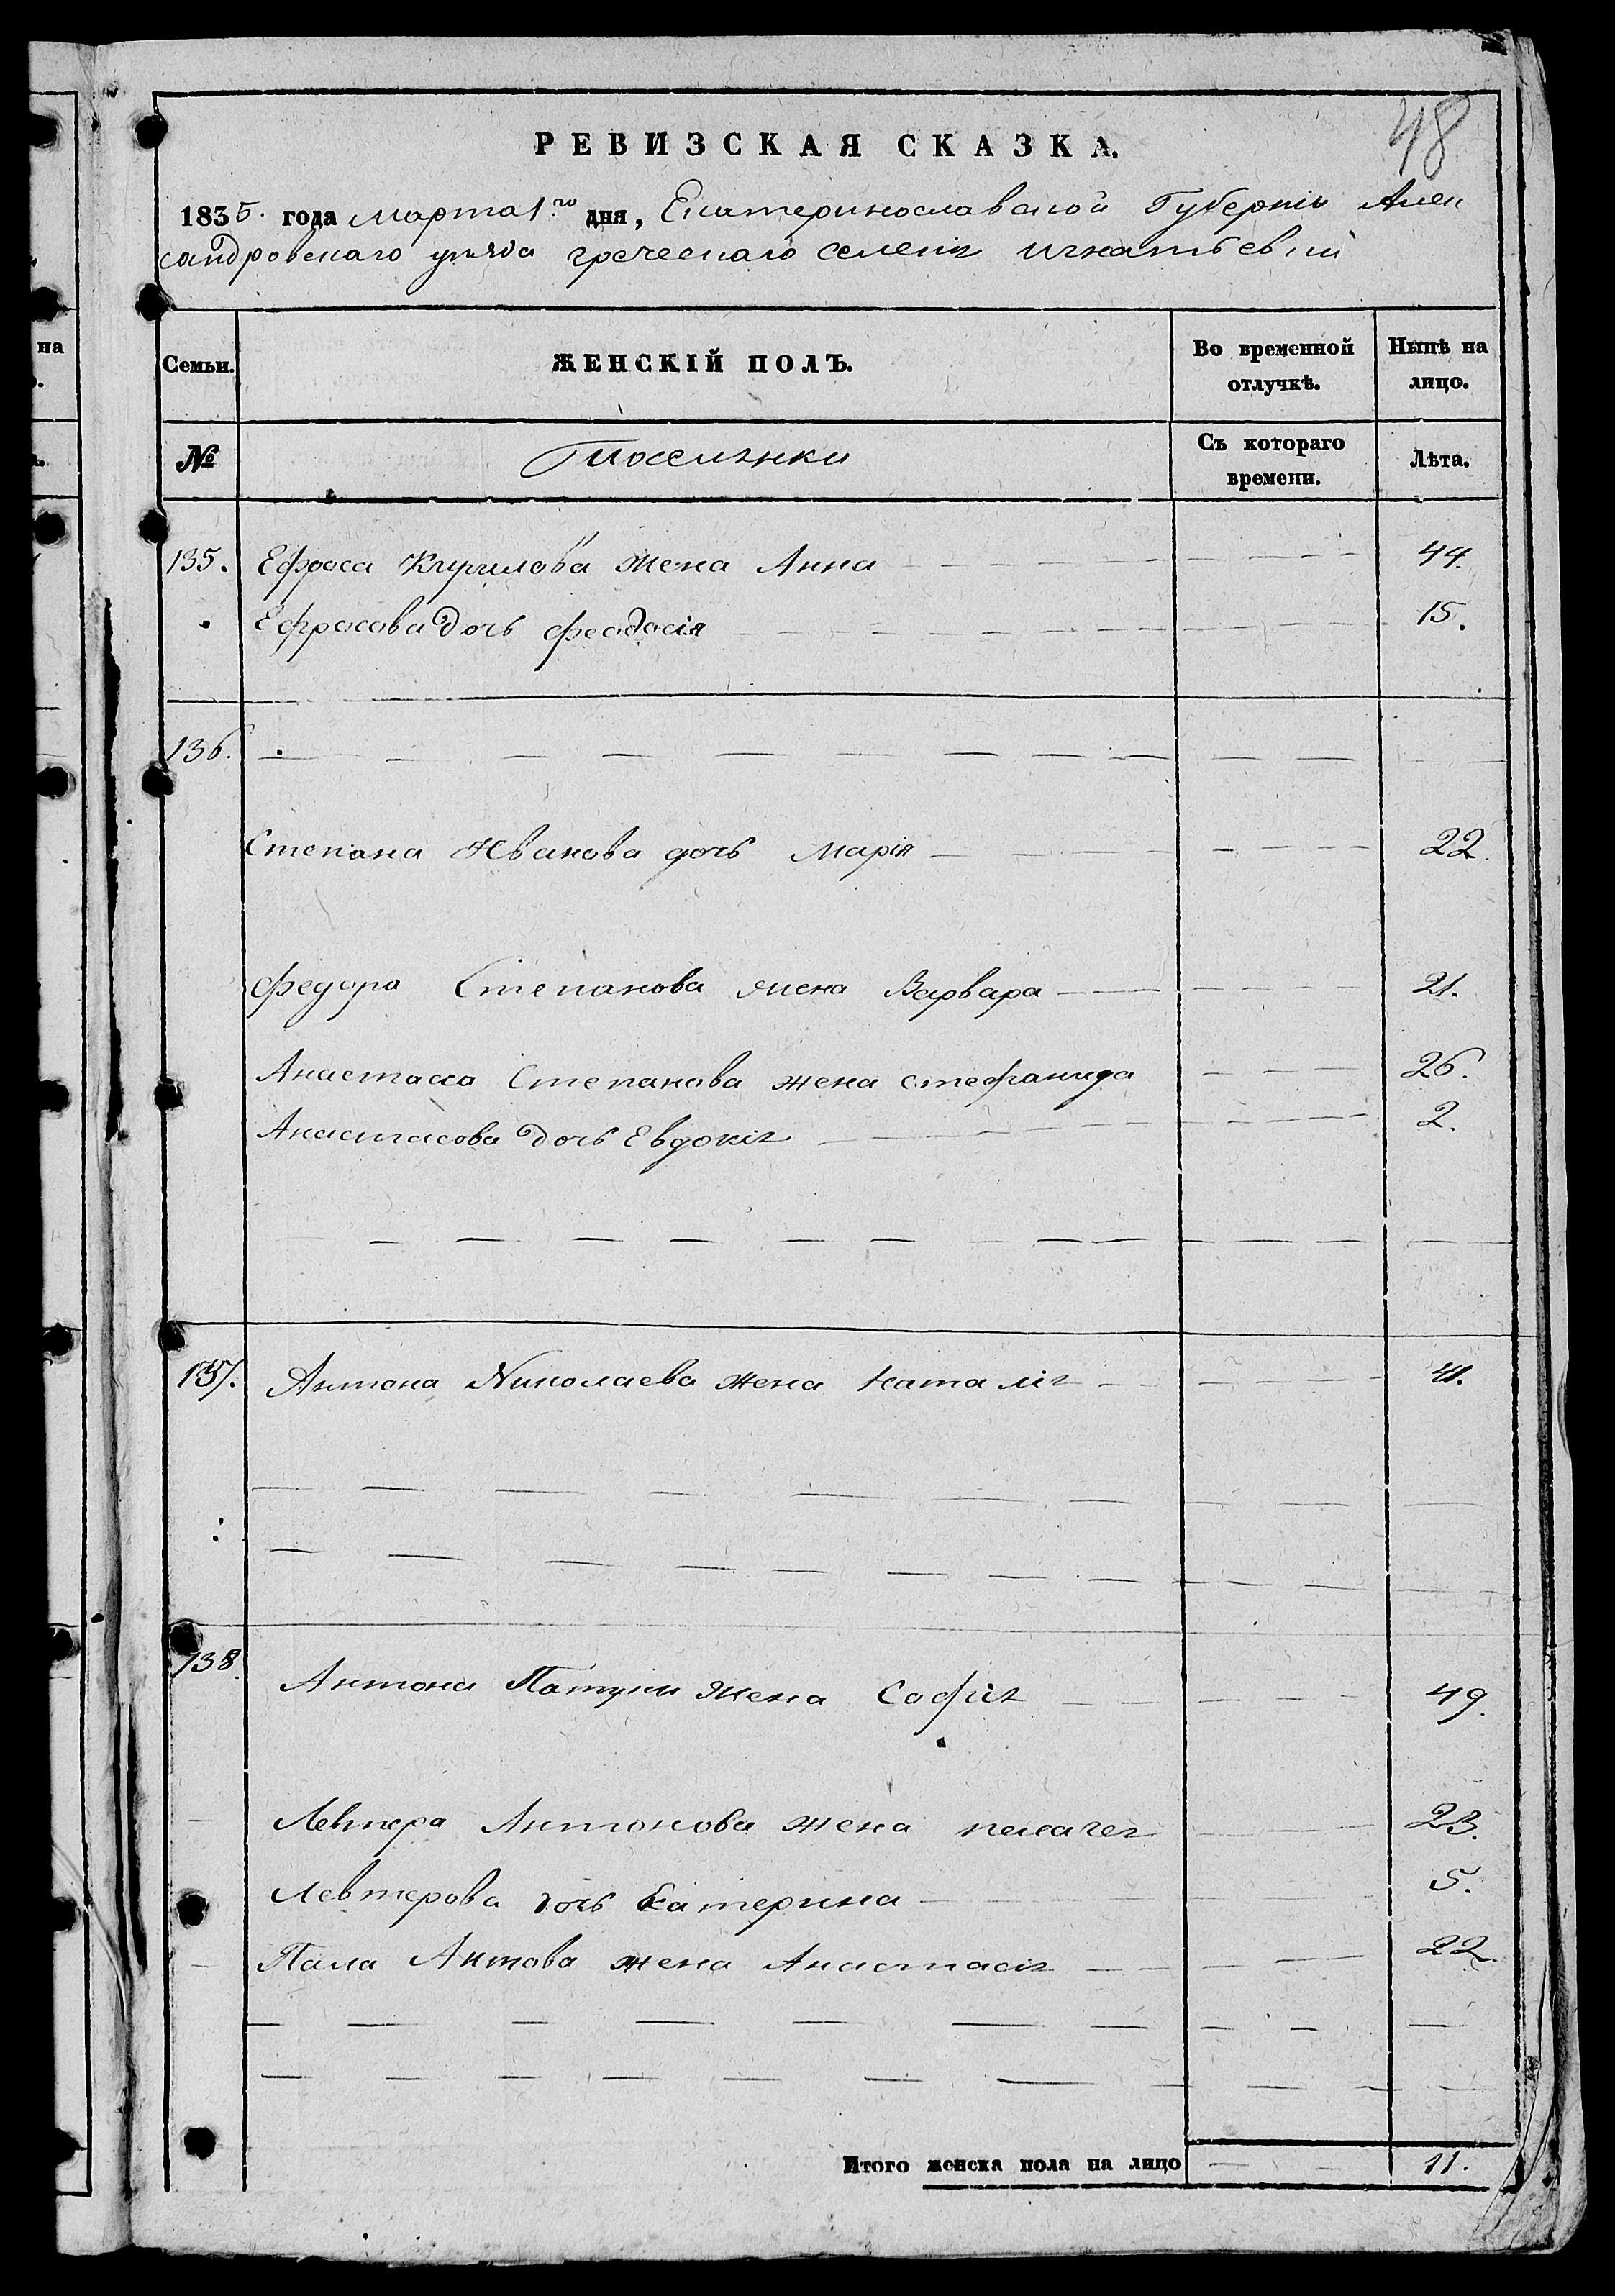 48
РЕВИЗСКАЯ СКАЗКА.
1835. года марта 1го дня, Екатеринославской Губерніи Алек
сандровскаго уѣзда греческаго селенія Игнатьевки
на
Семьи. ЖЕНСКІЙ ПОЛЪ. Во временной отлучкѣ. Нынѣ на лицо.
№ Поселянки Съ котораго времени. Лѣта.
135. Ефроса Кирилова жена Анна 44.
Ефросова дочь Феодосія 15.
136.
Степана Иванова дочь Марія 22.
Федора Степанова жена Варвара 21.
Анастаса Степанова жена Стефанида 26.
Анастасова дочь Евдокія 2.
137. Антона Николаева жена Наталія 41.
138. Антона жена Софія 49.
Левтера Антонова жена Пелагея 23.
Левтерова дочь Екатерина 5.
Пала Антова жена Анастасія 22.
Итого женска пола на лицо 11.